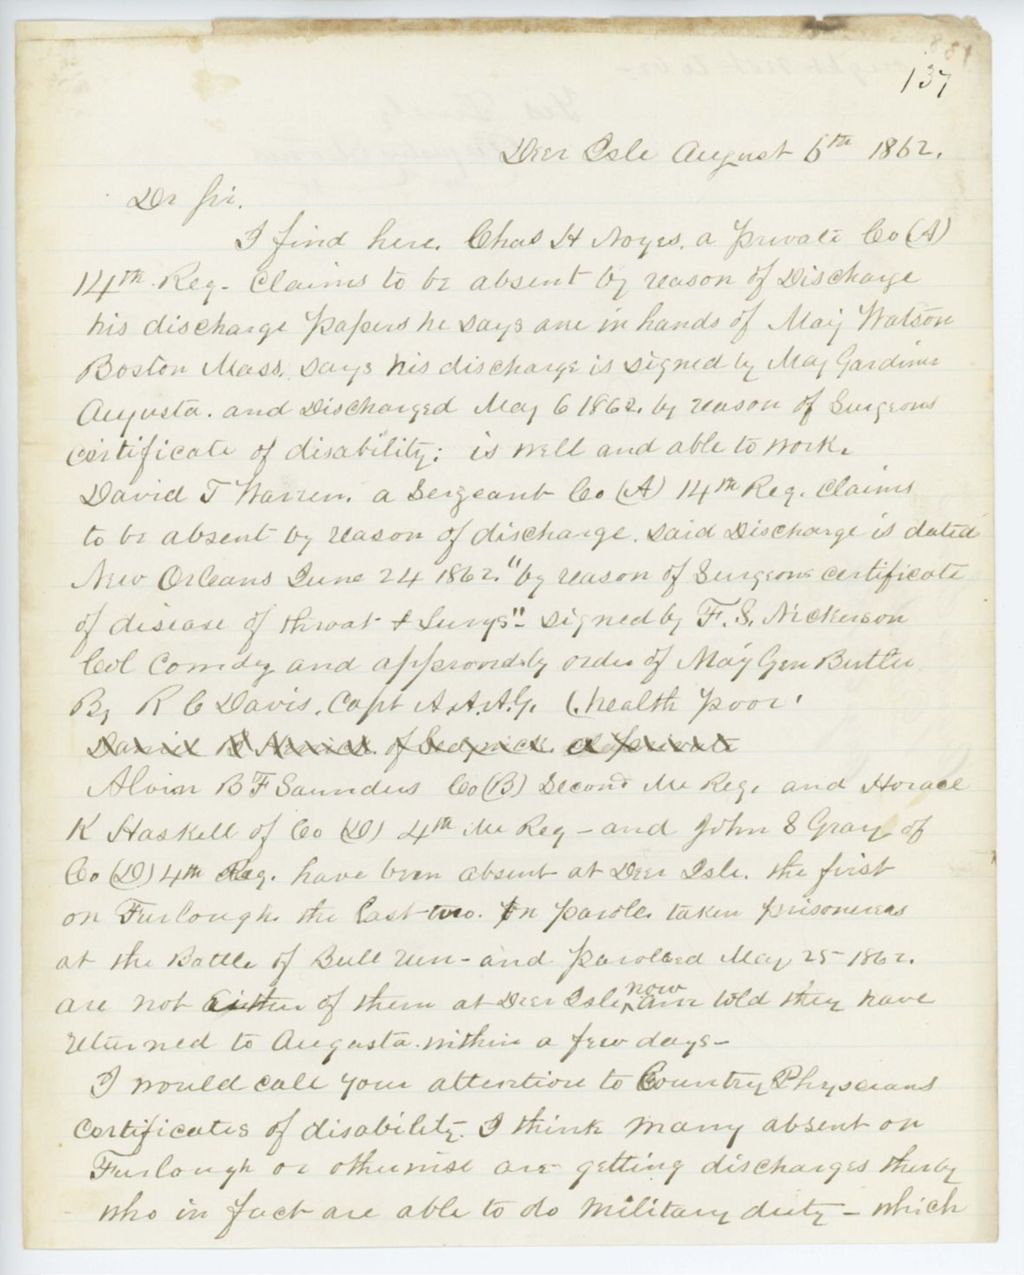 137
Deer Isle August 6th 1862.
Dr Sir.
I find here. Chas H Noyes. a private Co (A)
14th Reg. Claims to be absent by reason of Discharge
his discharge papers he says are in hands of Maj Watson
Boston Mass. says his discharge is signed by Maj Gardiner
Augusta. and Discharged May 6 1862. by reason of Surgeons
certificate of disability; is well and able to work.
David T Warren. a Sergeant Co (A) 14th Reg. Claims
to be absent by reason of discharge. said Discharge is dated
New Orleans June 24 1862. "by reason of Surgeons certificate
of disease of throat & Lungs" signed by F. S. Nickerson
Col Comdg and approved by order of Maj Gen Butler
By R C Davis. Capt A.A.A.G. (health poor'
of Sedgwick. a private
Alvin B F Saunders Co (B) Second Me Reg, and Horace
K Haskell of Co (D) 4th Me Reg - and John S Gray of
Co (D) 4th Reg. have been absent at Deer Isle. the first
on Furlough. the Last two. on parole. taken prisoneres
at the Battle of Bull Run - and paroleed May 25 1862.
are not Either of them at Deer Isle now am told they have
returned to Augusta within a few days -
I would call your attention to Country Physcians
Certificates of disability. I think many absent on
Furlough or otherwise are getting discharges therby
who in fact are able to do Military duty - which